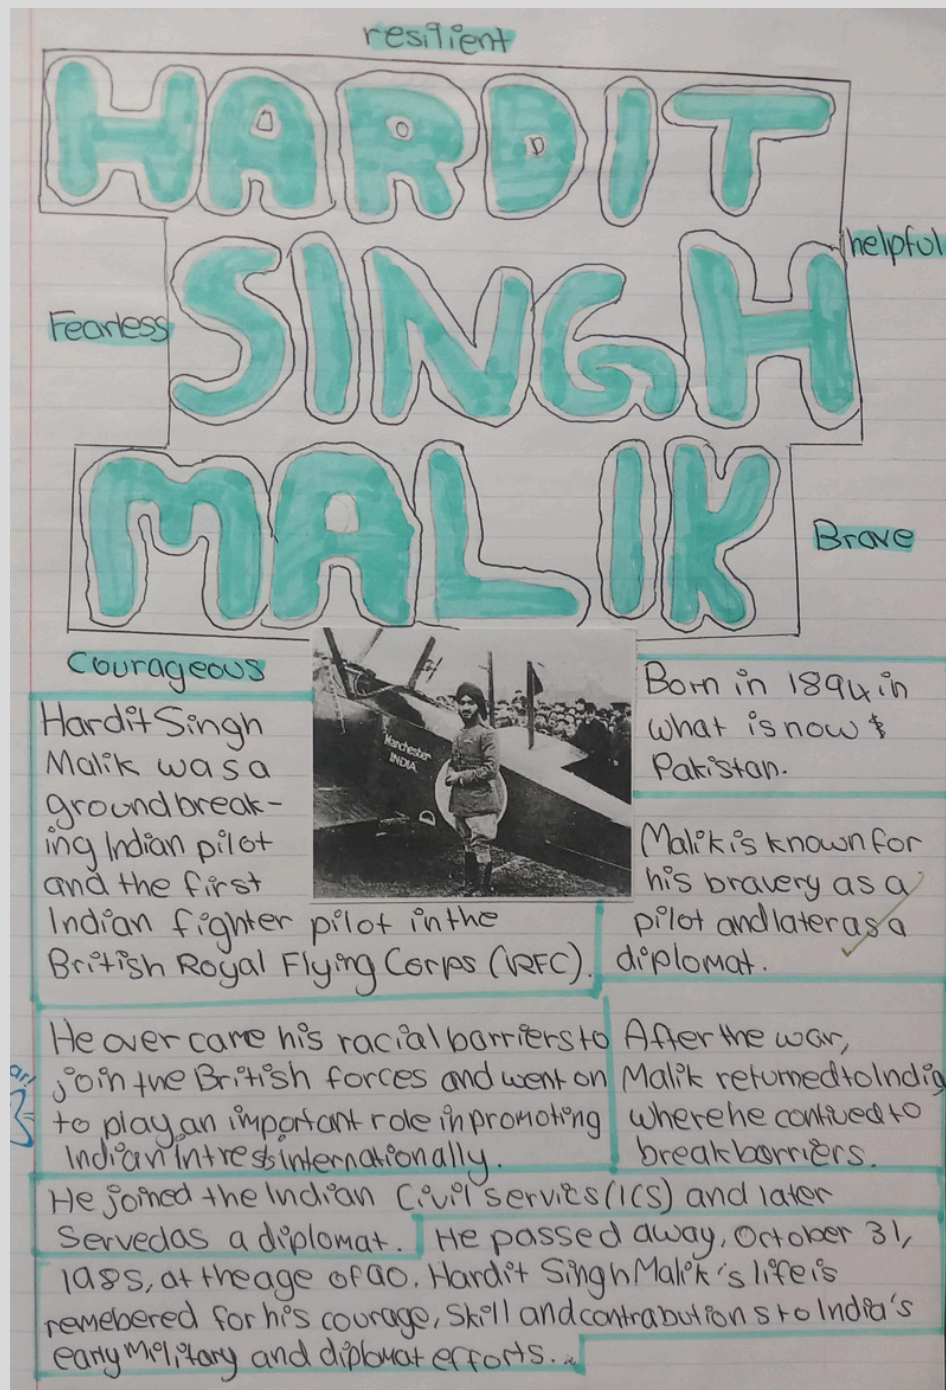 resilient
HARDIT
SINGH
MALIK
helpful
Fearless
Brave
Courageous
Hardit Singh
Malik was a
groundbreak-
ing Indian pilot
and the first
Indian fighter pilot in the
British Royal Flying Corps (RFC).
Manchester
INDIA
D
Born in 1894 in
what is now
Pakistan.
Malik is known for
his bravery as a
pilot and later as a
diplomat.
He over came his racial barriers to
join the British forces and went on
to play an important role in promoting
Indian intress internationally.
After the war,
Malik returned to India
where he contiued to
break barriers.
He joined the Indian Civil servics (ICS) and later
Served as a diplomat.
He passed away, October 31,
1985, at the age of 90. Hardit Singh Malik's life is
remebered for his courage, skill and contrabutions to India's
early military and diplomat efforts.